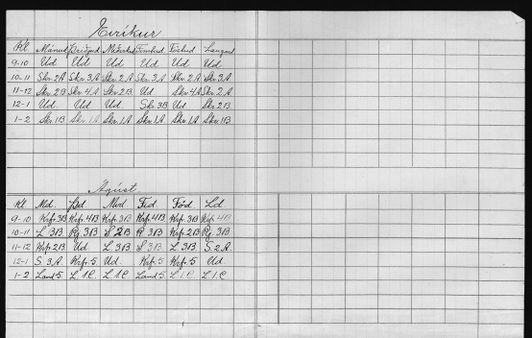 Eiríkur
Kl. Mánud Þriðjud Miðvikud Fimtud Föstud Laugard
9-10 Ud Ud Ud Ud Ud Ud
10-11 Skr. 2A Skr. 3A Skr. 2A Skr. 3A Skr. 2A Skr. 3A
11-12 Skr. 2B Skr. 4A Skr. 2B Ud Skr. 4A Skr. 2A
12-1 Ud Ud Ud Skr. 3B Ud Skr. 2B
1-2 Skr. 1B Skr. 1A Skr. 1A Skr. 1A Skr. 1A Skr. 1B
Ágúst
Kl. Md. Þd. Mvd Fid Föd. Ld.
9-10 Krf. 3B Krf. 4B Krf. 3B Krf. 4B Krf. 3B Krf. 4B
10-11 L 3B Rg. 3B S 2B R 3B Krf. 2B Rg. 3B
11-12 Krf. 2B Ud L 3B S 3B L 3B S. 2A
12-1 S. 3A Krf. 5 Ud. Krf. 5 Krf. 5 Ud.
1-2 Land 5 L 1C L 1C Land 5 L 1C L 1C